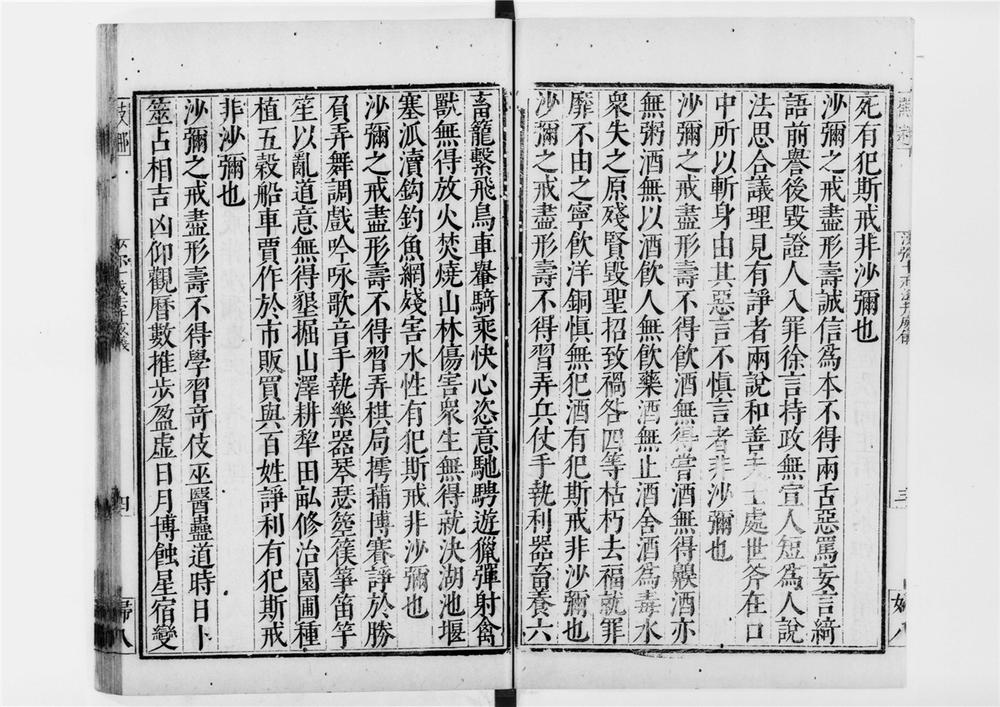 死有犯斯戒非沙彌也
沙彌之戒盡形壽誠信爲本不得兩舌惡罵妄言綺
語前譽後毀證人入罪徐言持政無宣人短爲人說
法思合議理見有諍者兩說和善夫士處世斧在口
中所以斬身由其惡言不愼言者非沙彌也
沙彌之戒盡形壽不得飲酒無得嘗酒無得齅酒亦
無粥酒無以酒飲人無飲藥酒無止酒舍酒爲毒水
衆失之原殘賢毀聖招致禍咎四等枯朽去福就罪
靡不由之寧飲洋銅愼無犯酒有犯斯戒非沙彌也
沙彌之戒盡形壽不得習弄兵仗手執利器畜養六
畜籠繫飛鳥車轝騎乘快心恣意馳騁遊獵彈射禽
獸無得放火焚燒山林傷害衆生無得就決湖池堰
塞泒瀆鈎釣魚網殘害水性有犯斯戒非沙彌也
沙彌之戒盡形壽不得習弄棋局摴蒱博賽諍於勝
負弄舞調戲吟咏歌音手執樂器琴瑟箜篌箏笛竽
笙以亂道意無得墾掘山澤耕犂田畝修治園圃種
植五穀船車賈作於市販買與百姓諍利有犯斯戒
非沙彌也
沙彌之戒盡形壽不得學習奇伎巫醫蠱道時日卜
筮占相吉凶仰觀曆數推步盈虛日月博蝕星宿變
四